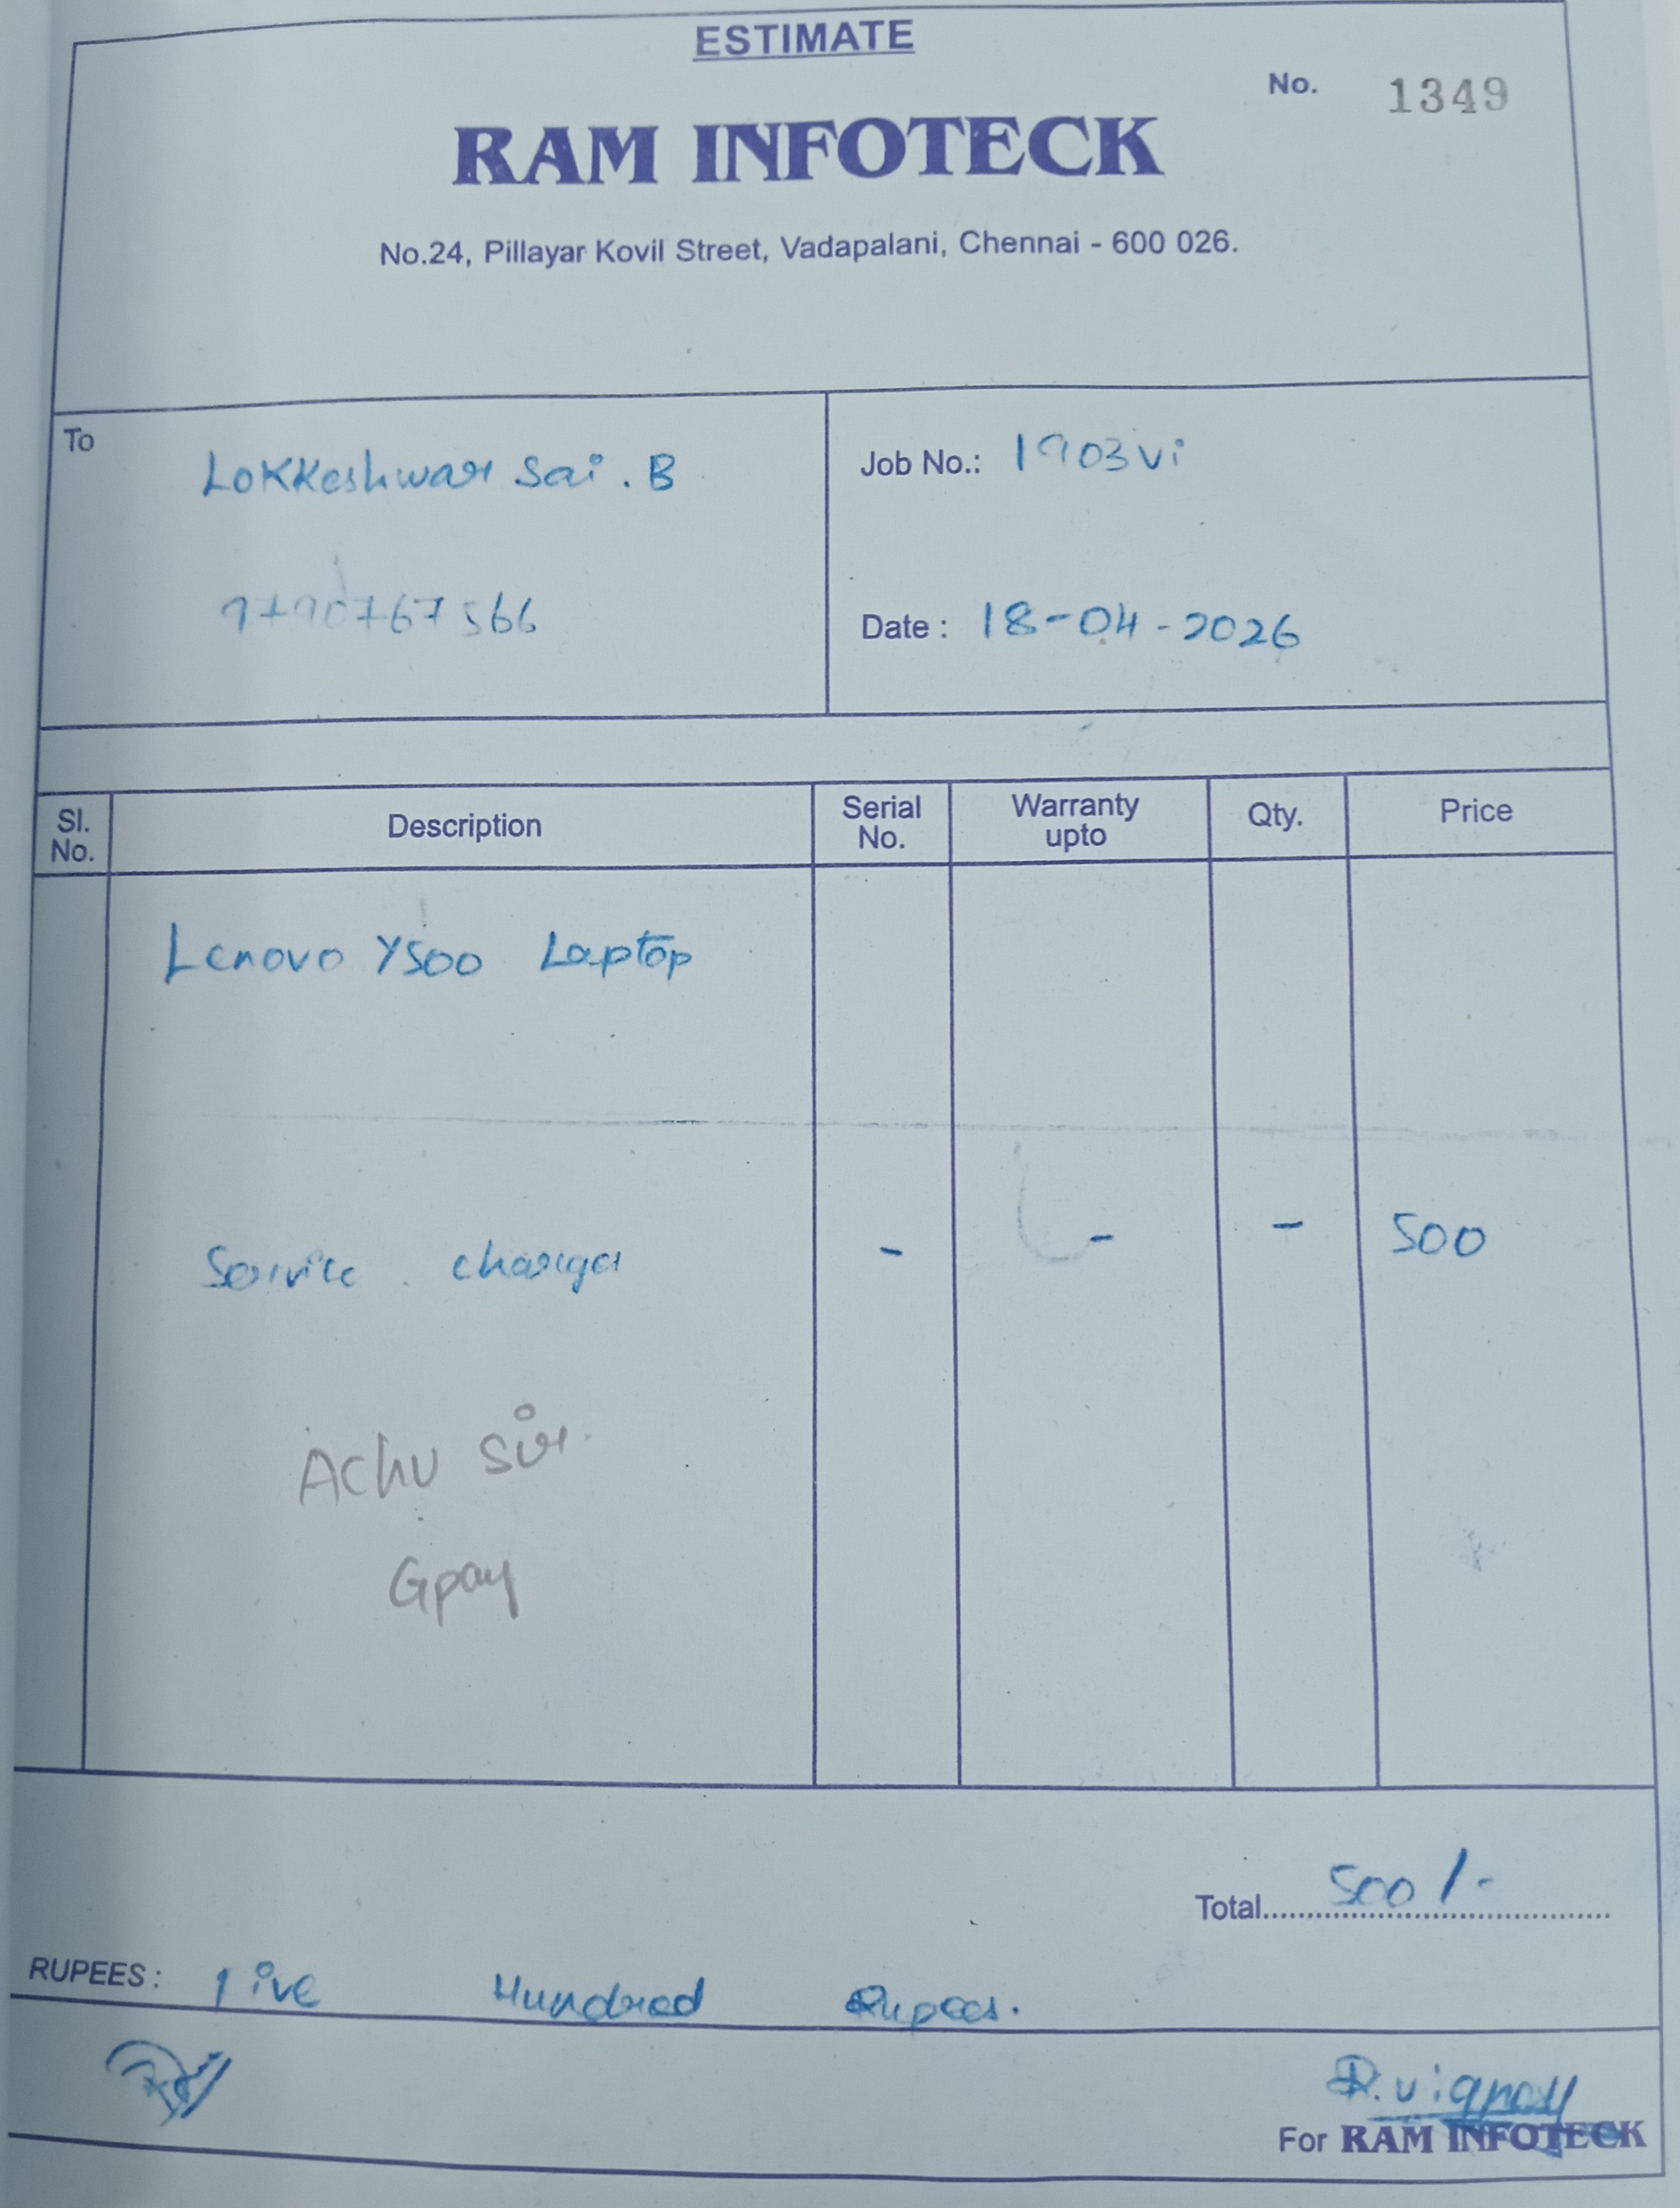 ESTIMATE
No. 1349
RAM INFOTECK
No.24, Pillayar Kovil Street, Vadapalani, Chennai - 600 026.
To
Lokkeshwar Sai . B
9790767566
Job No.: 1903vi
Date : 18-04-2026
Sl. No. Description Serial No. Warranty upto Qty. Price
Lenovo Y500 Laptop
Service charges - - - 500
Achu Sir.
Gpay
Total 500/-
RUPEES : Five Hundred Rupees.
For RAM INFOTECK